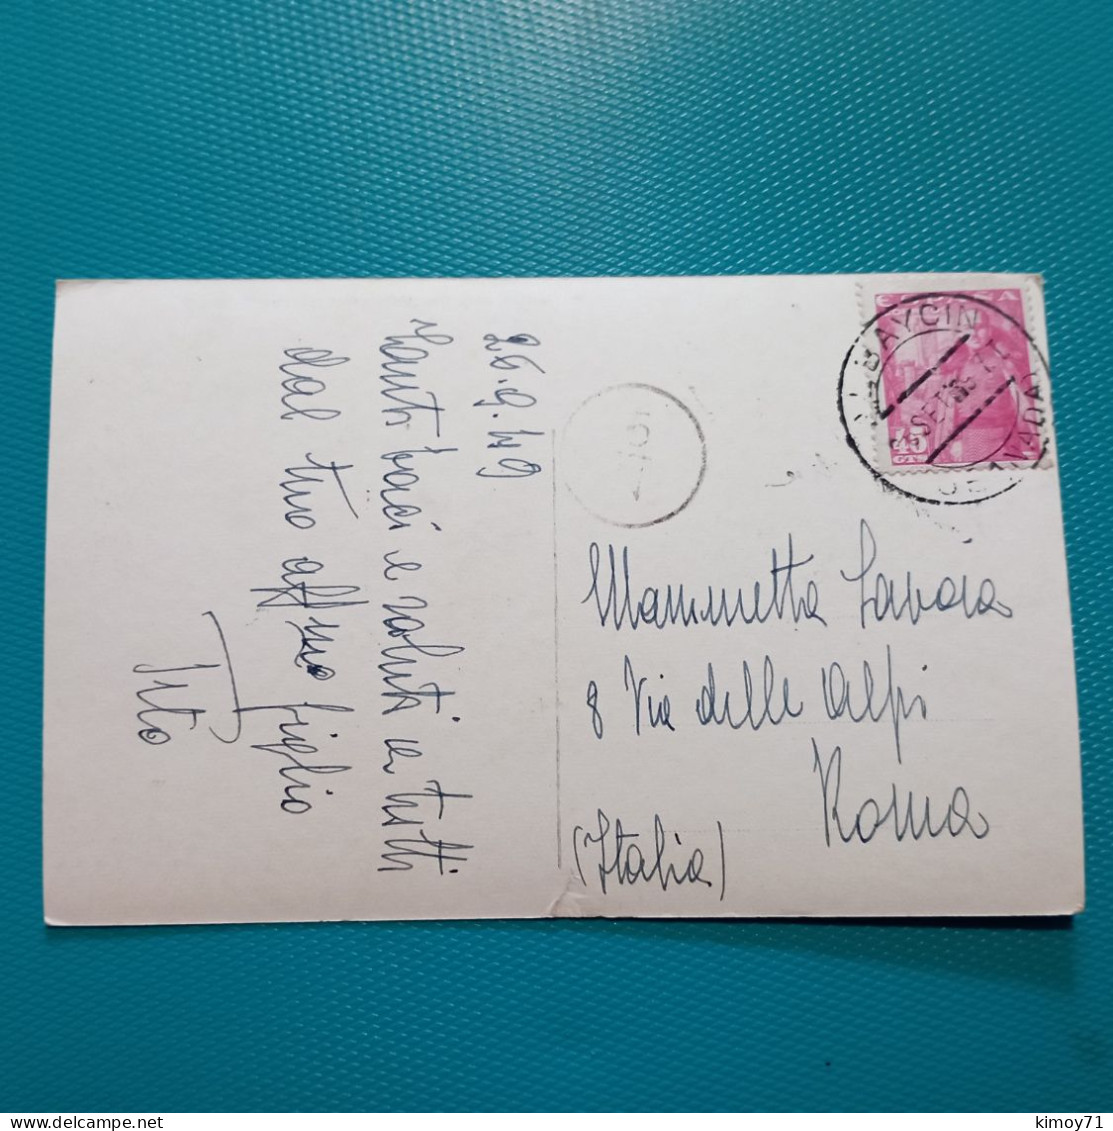 26.9.49
Tanti baci e saluti a tutti
dal tuo aff/mo figlio
Tito
ESPAÑA
45
CTS
SET
Mammetta Savoia
8 Via delle Alpi
Roma
(Italia)
kimoy71